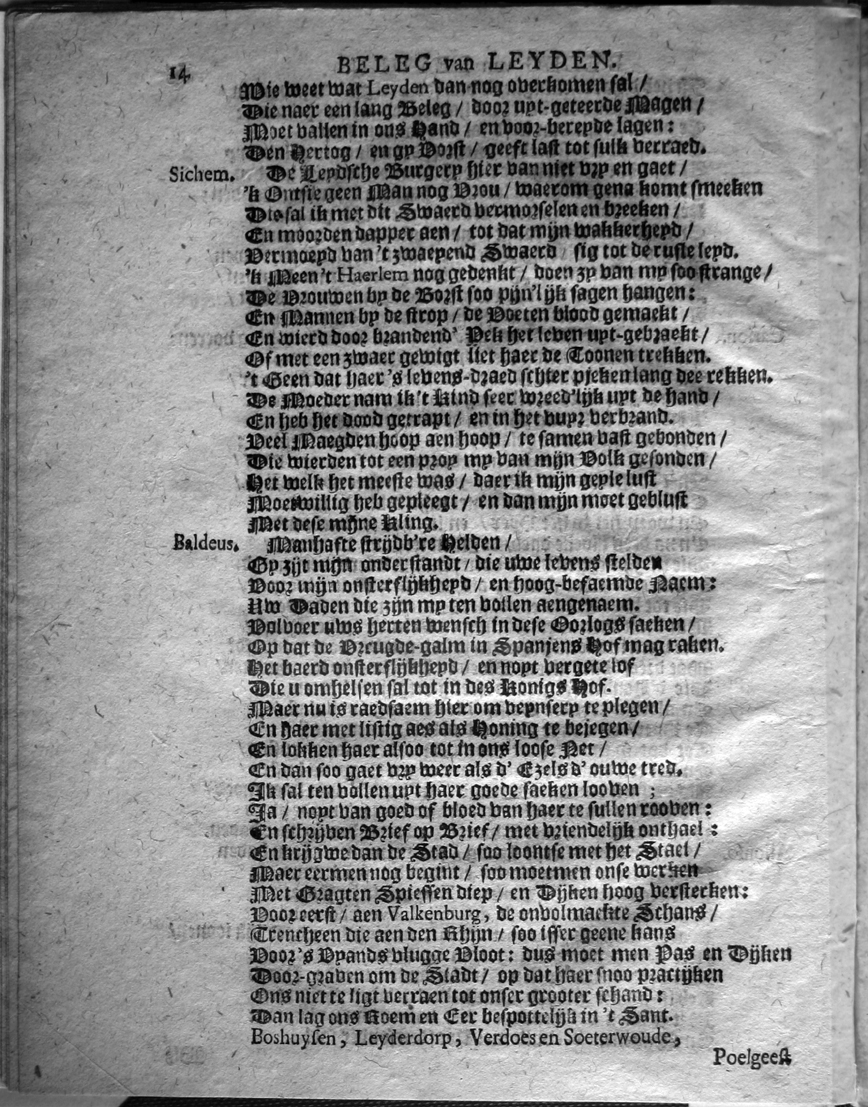 14 BELEG van LEYDEN.
Wie weet wat Leyden dan nog overkomen sal /
Die naer een lang Beleg / door uyt-geteerde Magen /
Moet vallen in ons Hand / en voor-bereyde lagen :
Den Hertog / en gy Vorst / geeft last tot sulk verraed.
Sichem. De Leydsche Burgery hier van niet vry en gaet /
'k Ontsie geen Man nog Vrou / waerom gena komt smeeken
Die sal ik met dit Swaerd vermorselen en breeken /
En moorden dapper aen / tot dat mijn wakkerheyd /
Vermoeyd van 't zwaeyend Swaerd / sig tot de ruste leyd.
'k Meen 't Haerlem nog gedenkt / doen zy van my soo strange /
De Vrouwen by de Borst soo pijn'lijk sagen hangen :
En Mannen by de strop / de Poeten blood gemaekt /
En wierd door brandend' Pek het leven uyt-gebraekt /
Of met een zwaer gewigt liet haer de Toonen trekken.
't Geen dat haer 's levens-draed schter pjeken lang dee rekken.
De Moeder nam ik 't Kind seer wreed'lijk uyt de hand /
En heb het dood getrapt / en in het vuyr verbrand.
Veel Maegden hoop aen hoop / te samen vast gebonden /
Die wierden tot een proy my van mijn Volk gesonden /
Het welk het meeste was / daer ik mijn geyle lust
Moetwillig heb gepleegt / en dan mijn moet geblust
Met dese mijne Kling.
Baldeus. Manhafte strijdb're Helden /
Gy zijt mijn onderstandt / die uwe levens stelden
Voor mijn onsterflijkheyd / en hoog-befaemde Naem :
Uw Daden die zijn my ten vollen aengenaem.
Volvoer uws herten wensch in dese Oorlogs saeken /
Op dat de Vreugde-galm in Spanjens Hof mag raken.
Het baerd onsterflijkheyd / en noyt vergete lof
Die u omhelsen sal tot in des Konigs Hof.
Maer nu is raedsaem hier om veynsery te plegen /
En haer met listig aes als Honing te bejegen /
En lokken haer alsoo tot in ons loose Net /
En dan soo gaet vry weer als d' Ezels d' ouwe tred.
Ik sal ten vollen uyt haer goede saeken looven ;
Ja / noyt van goed of bloed van haer te sullen rooven :
En schrijven Brief op Brief / met vriendelijk onthael :
En krijgwe dan de Stad / soo loontse met het Stael /
Maer eermen nog begint / soo moetmen onse werken
Met Gragten Spiessen diep / en Dijken hoog versterken :
Voor eerst / aen Valkenburg, de onvolmaekte Schans /
Trencheen die aen den Rhijn / soo isser geene kans
Voor 's Vyands vlugge Vloot : dus moet men Pas en Dijken
Door-graven om de Stadt / op dat haer snoo practijken
Ons niet te ligt verraen tot onser grooter schand :
Dan lag ons Roem en Eer bespottelijk in 't Sant.
Boshuysen, Leyderdorp, Verdoes en Soeterwoude,
Poelgeest